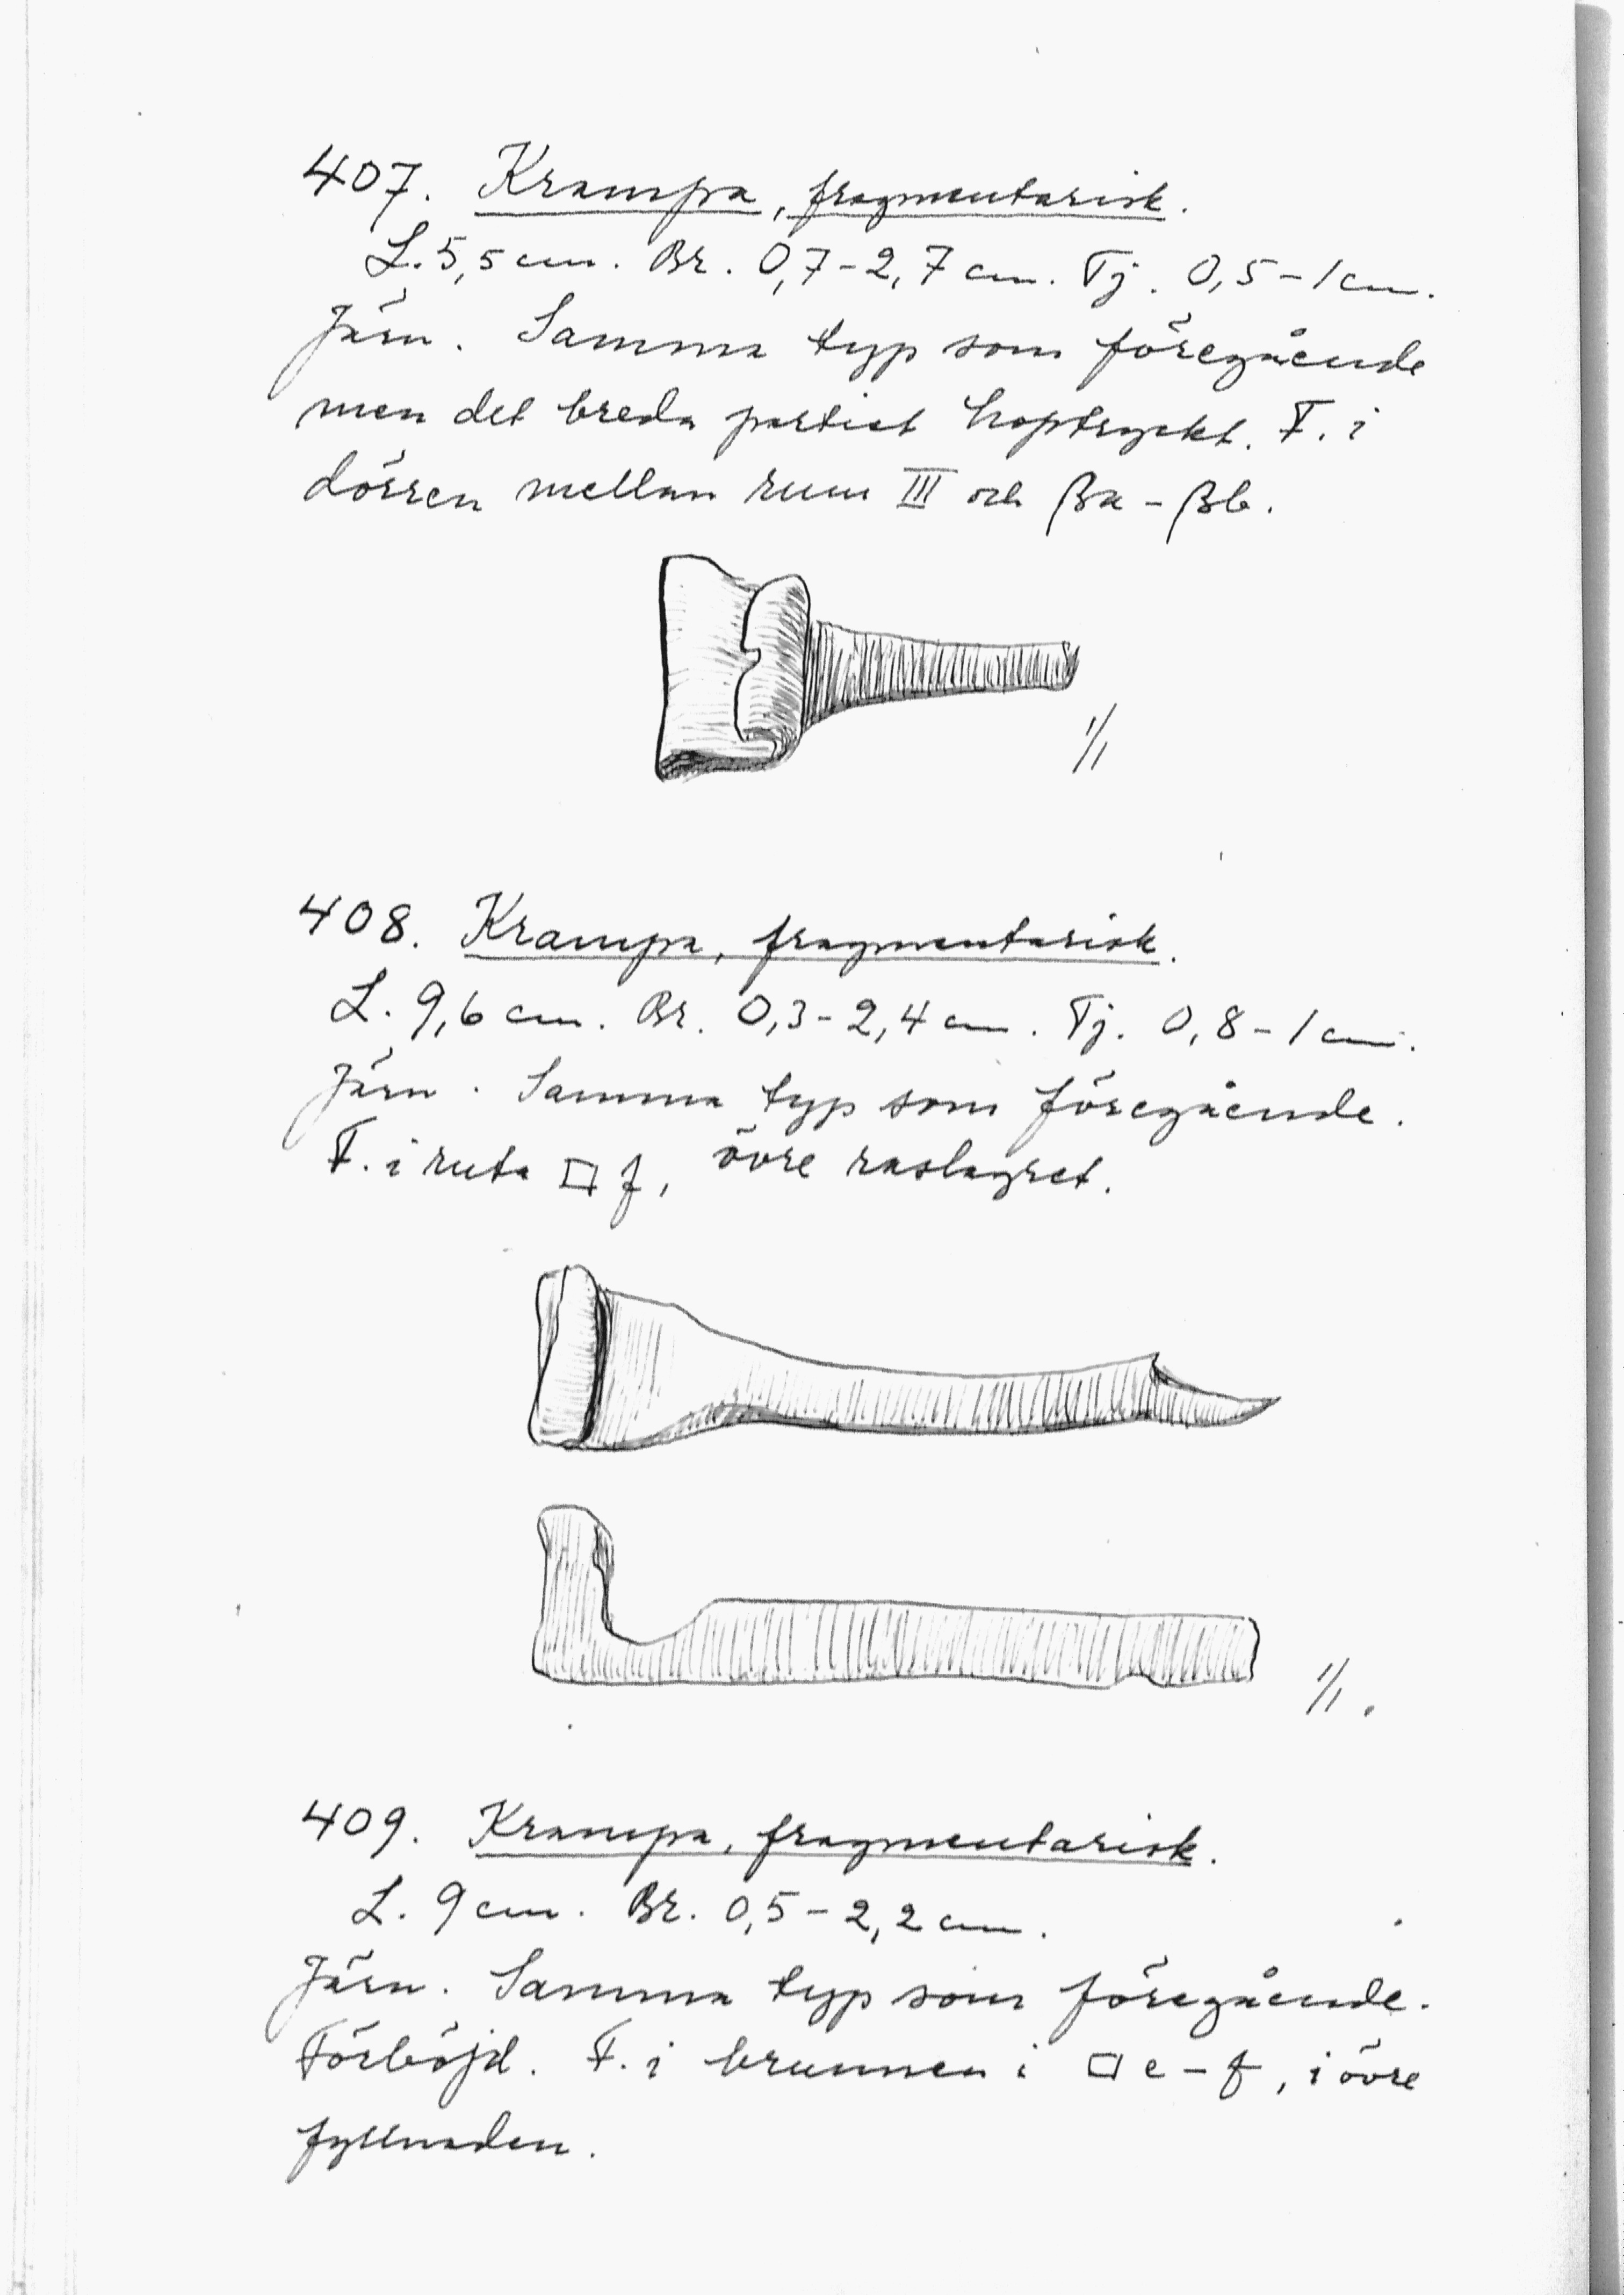 407. Krampa, fragmentarisk.
L. 5,5 cm. Br. 0,7-2,7 cm. Tj. 0,5-1 cm.
Järn. Samma typ som föregående
men det breda partiet hoptryckt. F. i
dörren mellan rum III och βa-βb.
1/1
408. Krampa, fragmentarisk.
L. 9,6 cm. Br. 0,3-2,4 cm. Tj. 0,8-1 cm.
Järn. Samma typ som föregående.
F. i ruta □ f, övre raslagret.
1/1.
409. Krampa, fragmentarisk.
L. 9 cm. Br. 0,5-2,2 cm.
Järn. Samma typ som föregående.
Förböjd. F. i brunnen i □ e-f, i övre
fyllnaden.